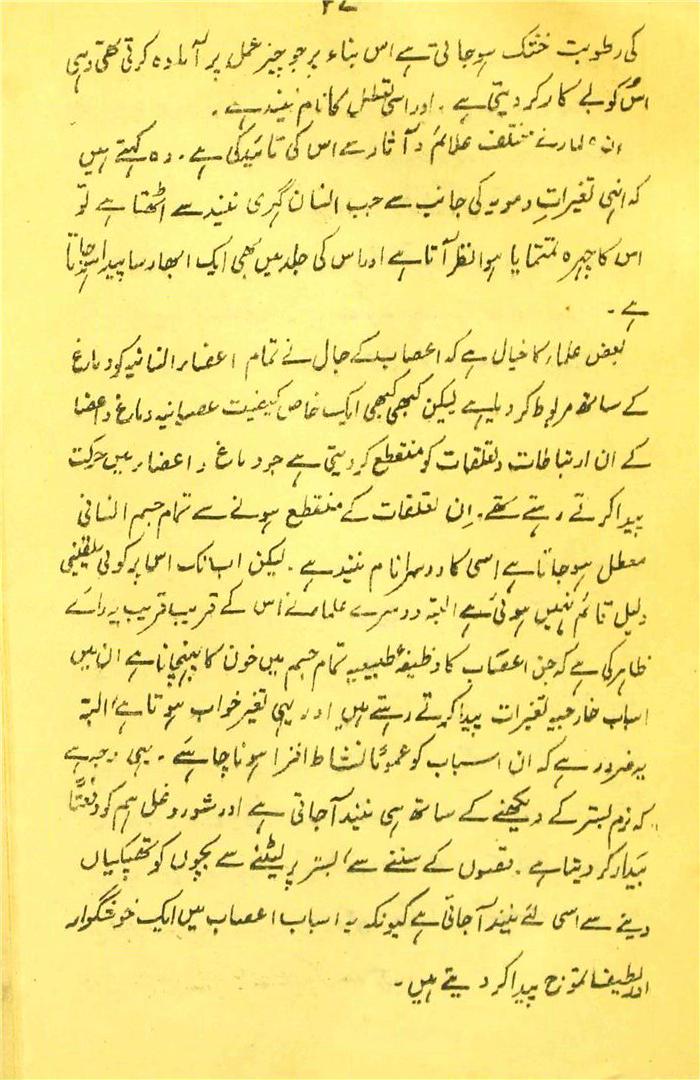 ۴۷
کی رطوبت خشک ہو جاتی ہے اس بناء پر جو چیز عمل پر آمادہ کرتی تھی وہی
اس کو بے کار کر دیتی ہے ۔ اور اسی تعطل کا نام نیند ہے ۔
ان علماء نے مختلف علائم و آثار سے اس کی تائید کی ہے ۔ وہ کہتے ہیں
کہ انہی تغیراتِ دمویہ کی جانب سے جب انسان گہری نیند سے اٹھتا ہے تو
اس کا چہرہ تمتمایا ہوا نظر آتا ہے اور اس کی جلد میں بھی ایک ابھار سا پیدا ہو جاتا
ہے ۔
بعض علماء کا خیال ہے کہ اعصاب کے جال نے تمام اعضاء انسانیہ کو دماغ
کے ساتھ مربوط کر دیا ہے لیکن کبھی کبھی ایک خاص کیفیت عصبانیہ دماغ و اعضا
کے ان ارتباطات و تعلقات کو منقطع کر دیتی ہے جو دماغ و اعضاء میں حرکت
پیدا کرتے رہتے تھے ۔ اِن تعلقات کے منقطع ہونے سے تمام جسم انسانی
معطل ہو جاتا ہے اسی کا دوسرا نام نیند ہے ۔ لیکن اب تک اس پر کوئی یقینی
دلیل قائم نہیں ہوئی ہے البتہ دوسرے علماء نے اس کے قریب قریب یہ رائے
ظاہر کی ہے کہ جن اعصاب کا وظیفۂ طبیعیہ تمام جسم میں خون کا پہنچانا ہے ان میں
اسباب خارجیہ تغیرات پیدا کرتے رہتے ہیں اور یہی تغیر خواب ہوتا ہے، البتہ
یہ ضرور ہے کہ ان اسباب کو عموماً نشاط افزا ہونا چاہئے ۔ یہی وجہ ہے
کہ نرم بستر کے دیکھنے کے ساتھ ہی نیند آجاتی ہے اور شور و غل ہم کو دفعتاً
بیدار کر دیتا ہے ۔ نغموں کے سننے سے، بستر پر لیٹنے سے بچوں کو تھپکیاں
دینے سے اسی لئے نیند آجاتی ہے کیونکہ یہ اسباب اعصاب میں ایک خوشگوار
اور لطیف تموج پیدا کر دیتے ہیں ۔